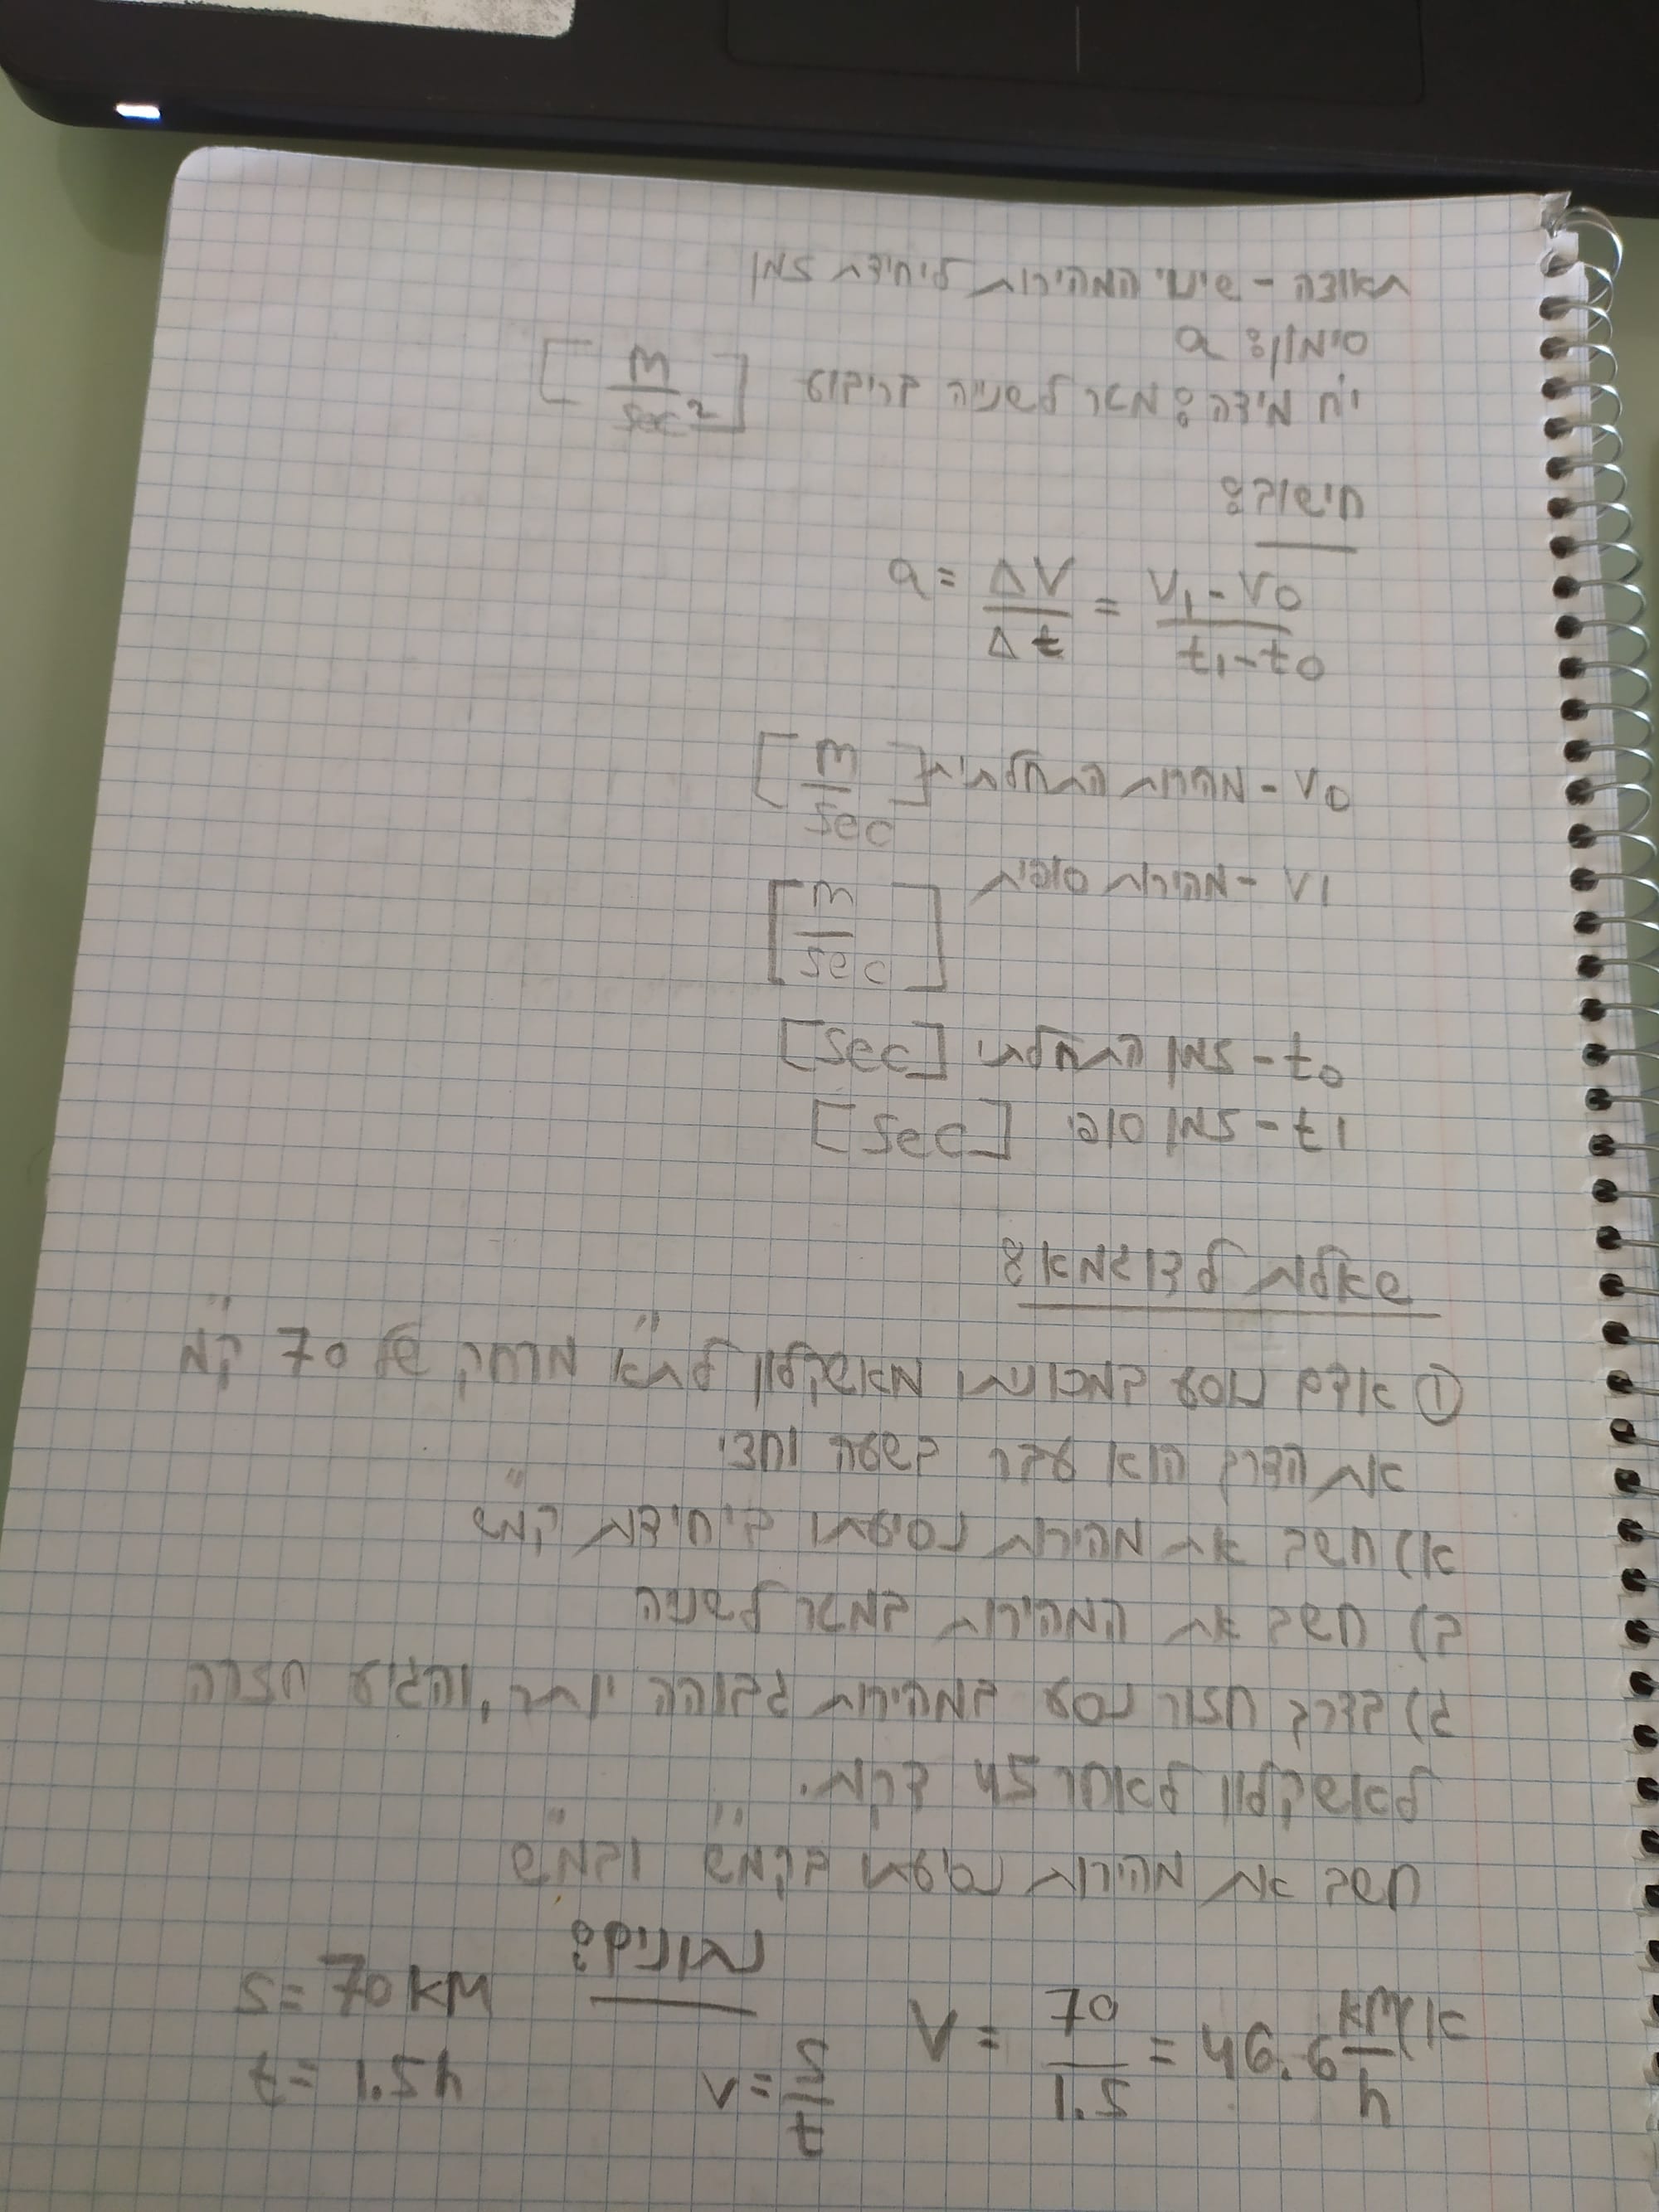 תאוצה - שינוי המהירות ליחידת זמן
סימון: a
יח מידה: מטר לשנייה בריבוע [m/sec²]
חישוב:
a = ΔV/Δt = V1-V0/t1-t0
V0 - מהרות התחלתית [m/sec]
V1 - מהירות סופית [m/sec]
t0 - זמן התחלתי [sec]
t1 - זמן סופי [sec]
שאלות לדוגמא:
① אדם נוסע במכוניתו מאשקלון לת"א מרחק של 70 ק"מ
את הדרך הוא עבר בשעה וחצי
א) חשב את מהירות נסיעתו ביחידת קמ"ש
ב) חשב את המהירות במטר לשניה
ג) בדרך חזור נסע במהירות גבוהה יותר, והגיע חזרה
לאשקלון לאחר 45 דקות.
חשב את מהירות נסיעתו בקמ"ש ובמ"ש
נתונים:
א) V = 70/1.5 = 46.6 km/h
V = S/t
S = 70 KM
t = 1.5h